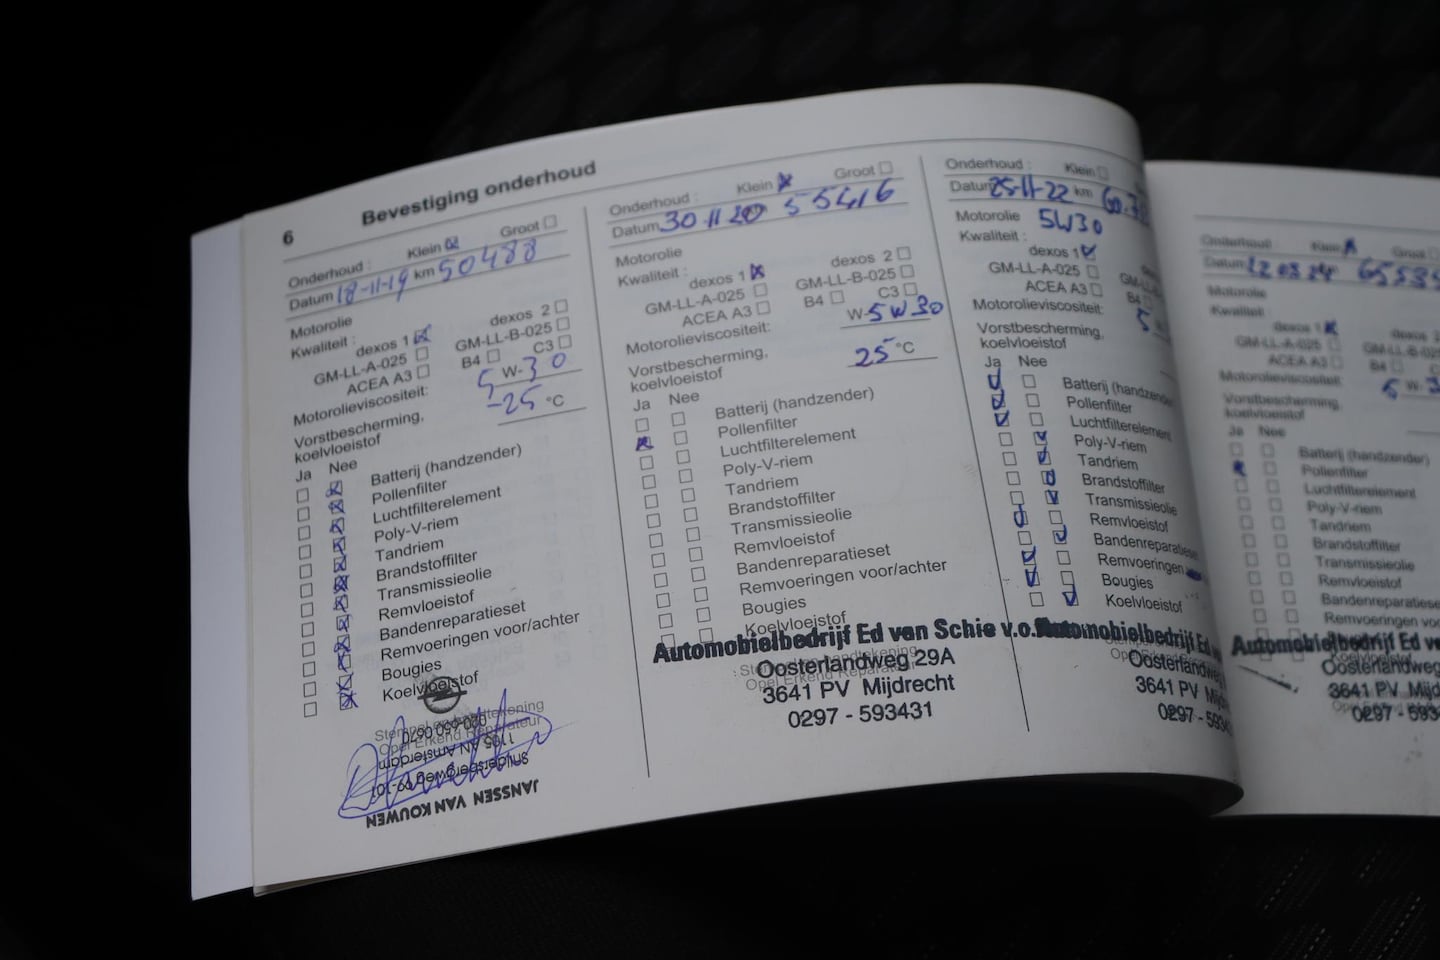 6
Bevestiging onderhoud
Onderhoud : Klein Groot
Datum 18-11-19 km 50488
Motorolie
Kwaliteit : dexos 1 dexos 2
GM-LL-A-025 GM-LL-B-025
ACEA A3 B4 C3
Motorolieviscositeit: 5 W-30
Vorstbescherming,
koelvloeistof -25 °C
Ja Nee
Batterij (handzender)
Pollenfilter
Luchtfilterelement
Poly-V-riem
Tandriem
Brandstoffilter
Transmissieolie
Remvloeistof
Bandenreparatieset
Remvoeringen voor/achter
Bougies
Koelvloeistof
Stempel en handtekening
Opel Erkend Reparateur
JANSSEN VAN KOUWEN
Snijdersbergweg
1105 AN Amsterdam
Onderhoud : Klein Groot
Datum 30 11 20 55416
Motorolie
Kwaliteit : dexos 1 dexos 2
GM-LL-A-025 GM-LL-B-025
ACEA A3 B4 C3
Motorolieviscositeit: W-5W30
Vorstbescherming,
koelvloeistof 25 °C
Ja Nee
Batterij (handzender)
Pollenfilter
Luchtfilterelement
Poly-V-riem
Tandriem
Brandstoffilter
Transmissieolie
Remvloeistof
Bandenreparatieset
Remvoeringen voor/achter
Bougies
Koelvloeistof
Stempel en handtekening
Opel Erkend Reparateur
Automobielbedrijf Ed van Schie v.o.f.
Oosterlandweg 29A
3641 PV Mijdrecht
0297 - 593431
Onderhoud : Klein
Datum 25-11-22 km
Motorolie 5W30
Kwaliteit :
dexos 1
GM-LL-A-025
ACEA A3 B4
Motorolieviscositeit: 5
Vorstbescherming,
koelvloeistof
Ja Nee
Batterij (handzender
Pollenfilter
Luchtfilterelement
Poly-V-riem
Tandriem
Brandstoffilter
Transmissieolie
Remvloeistof
Bandenreparatieset
Remvoeringen
Bougies
Koelvloeistof
Automobielbedrijf Ed
Oosterlandweg
3641 PV Mijd
0297 - 593
Onderhoud : Klein Groot
Datum 12 03 24
Motorolie
Kwaliteit :
dexos 1 dexos 2
GM-LL-A-025 GM-LL-B-025
ACEA A3 B4 C
Motorolieviscositeit: 5 W-3
Vorstbescherming,
koelvloeistof
Ja Nee
Batterij (handzender)
Pollenfilter
Luchtfilterelement
Poly-V-riem
Tandriem
Brandstoffilter
Transmissieolie
Remvloeistof
Bandenreparatiese
Remvoeringen vo
Bougies
Automobielbedrijf Ed v
Oosterlandweg
3641 PV Mijd
0297 - 593